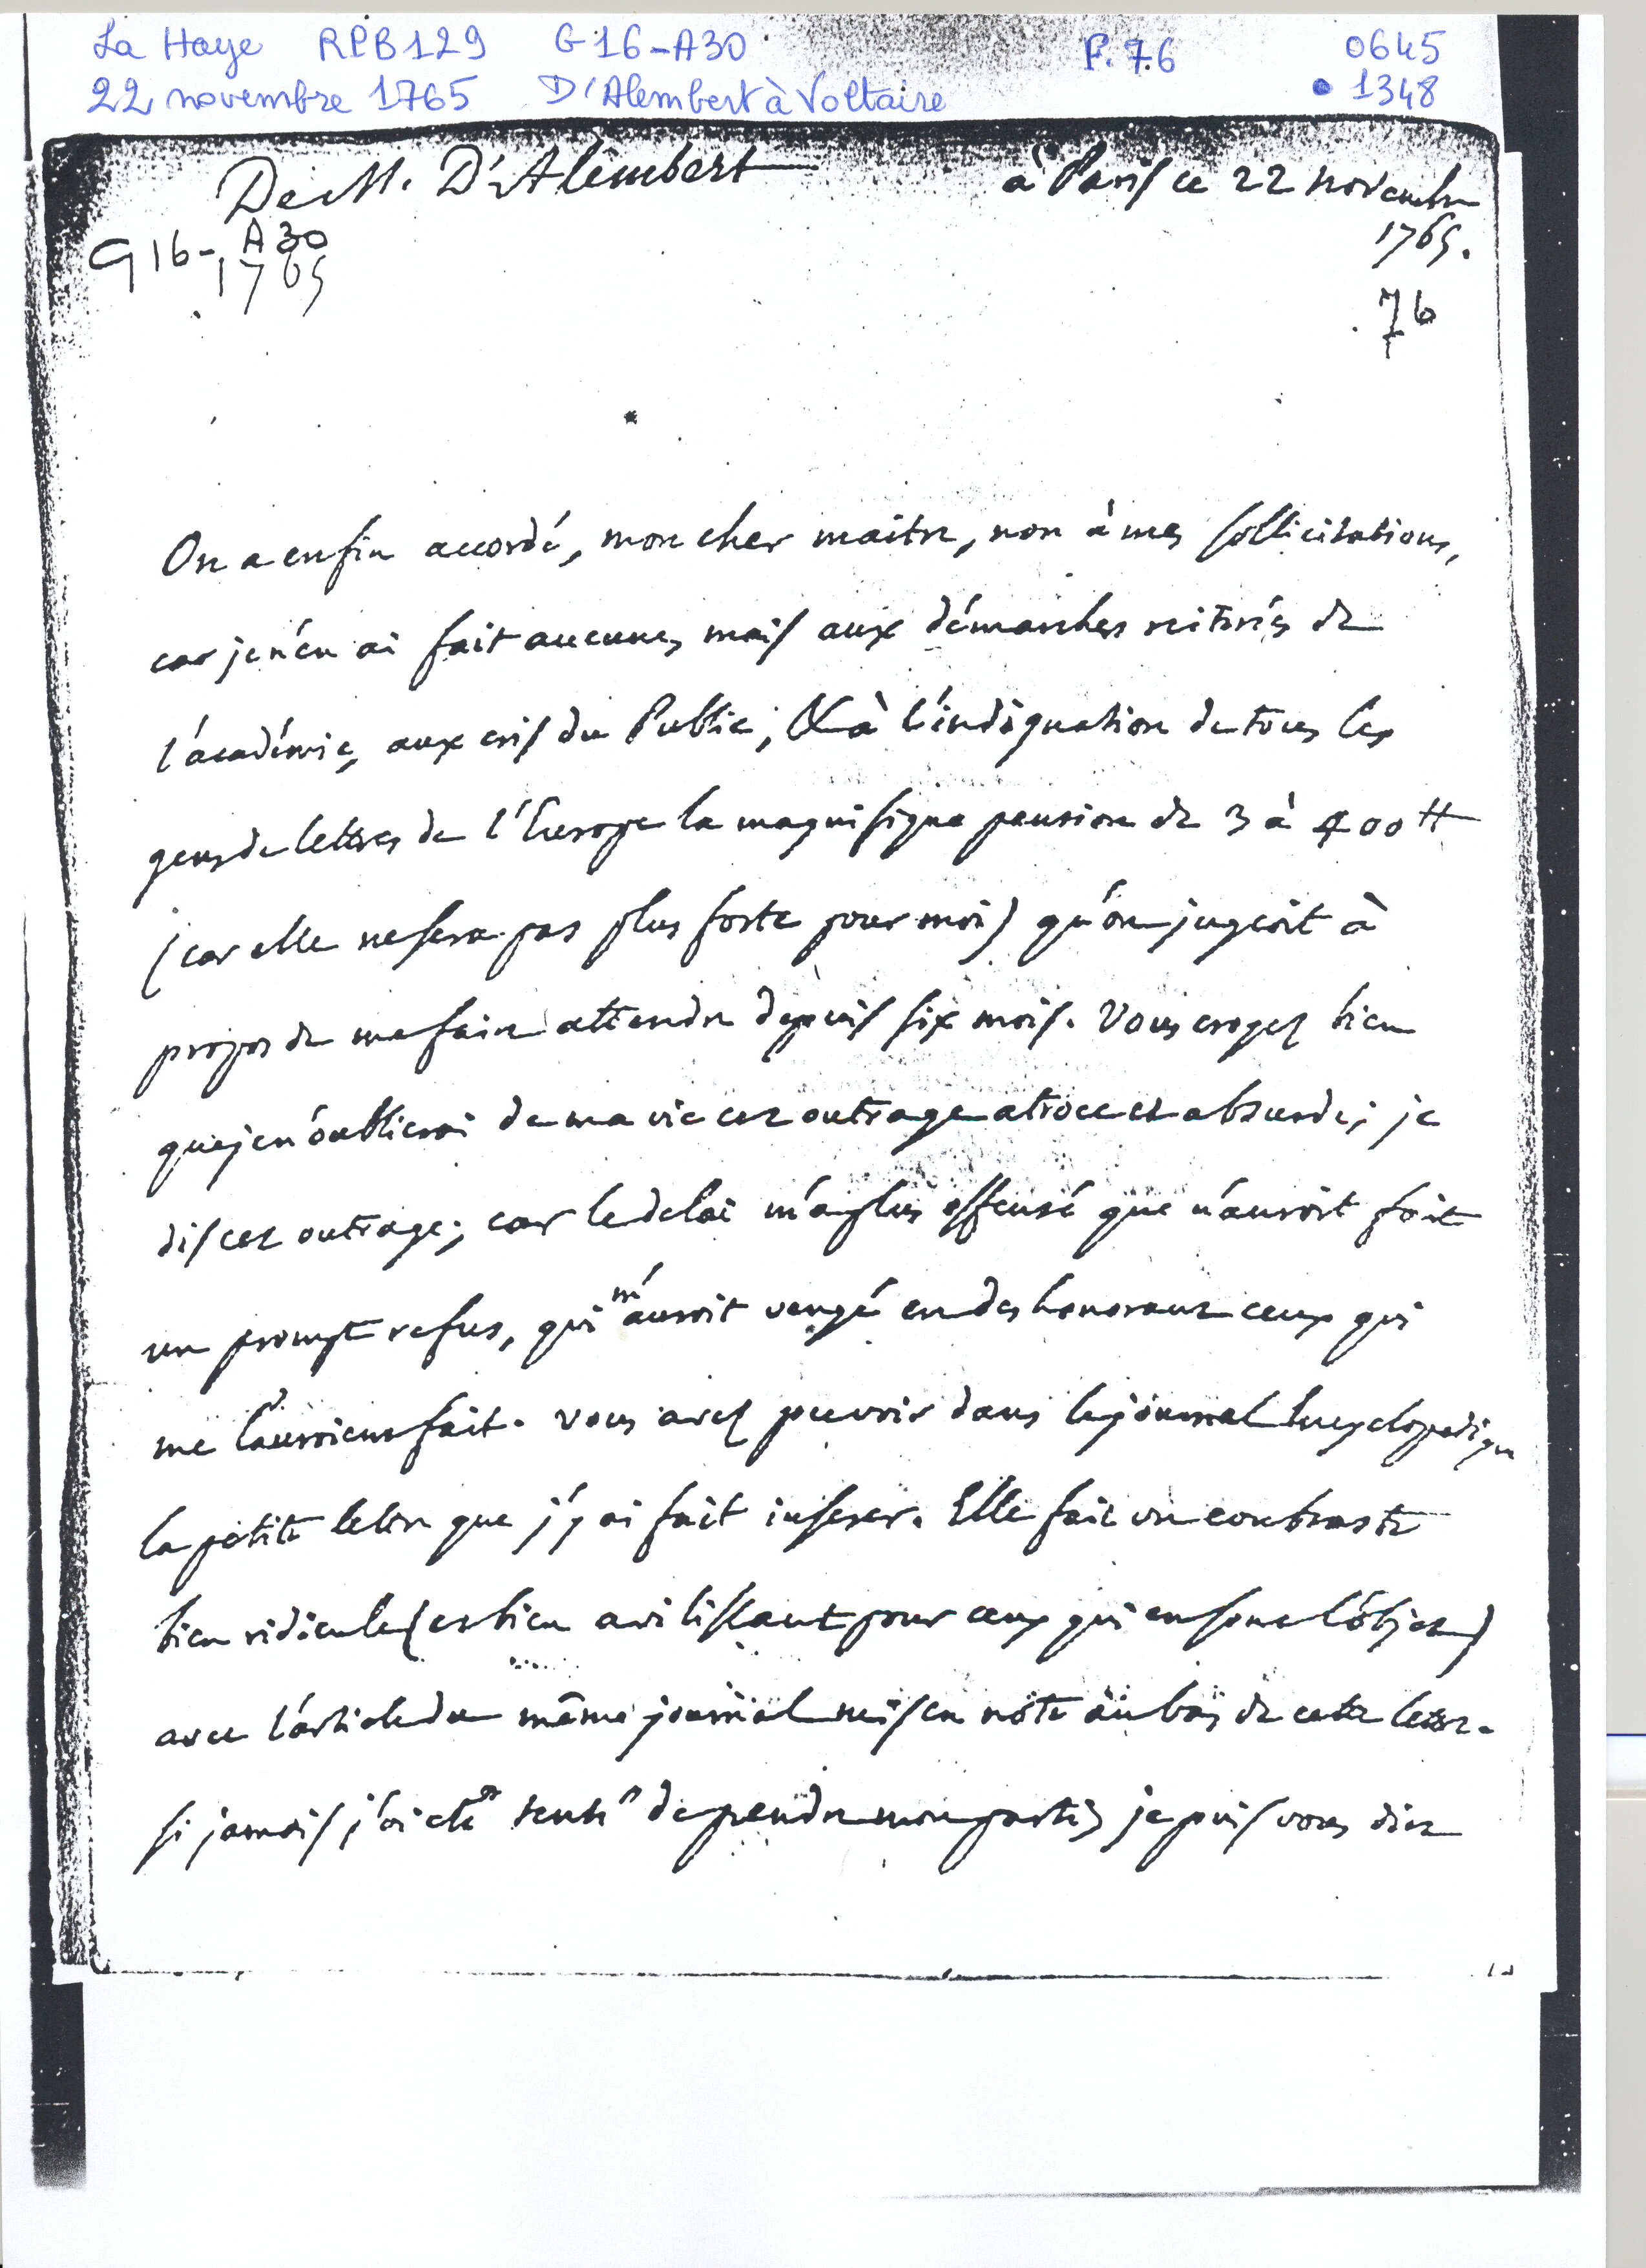 La Haye RPB129 G16-A30 P. 76 0645
22 novembre 1765 D'Alembert à Voltaire 1348
De M. D'Alembert à Paris ce 22 novembre
1765.
G16-A30
1765
76
On a enfin accordé, mon cher maitre, non à mes sollicitations,
car je n'en ai fait aucune, mais aux démarches reiterées de
l'académie, aux cris du Public, & à l'indignation de tous les
gens de lettres de l'Europe la magnifique pension de 3 à 400 ₶
(car elle ne sera pas plus forte pour moi) qu'on jugeoit à
propos de me faire attendre depuis six mois. Vous croyez bien
que je n'oublierai de ma vie cet outrage atroce et absurde; je
dis cet outrage; car le delai m'a plus offensé que n'auroit fait
un prompt refus, qui m'auroit vengé en deshonorant ceux qui
me l'auroient fait. vous avez pu voir dans le journal Encyclopedique
la petite lettre que j'y ai fait inserer. Elle fait un contraste
bien ridicule (et bien avilissant pour ceux qui en sont l'objet)
avec l'article du même journal mis en note au bas de cette lettre.
si jamais j'ai eté tenté de prendre mon parti, je puis vous dire